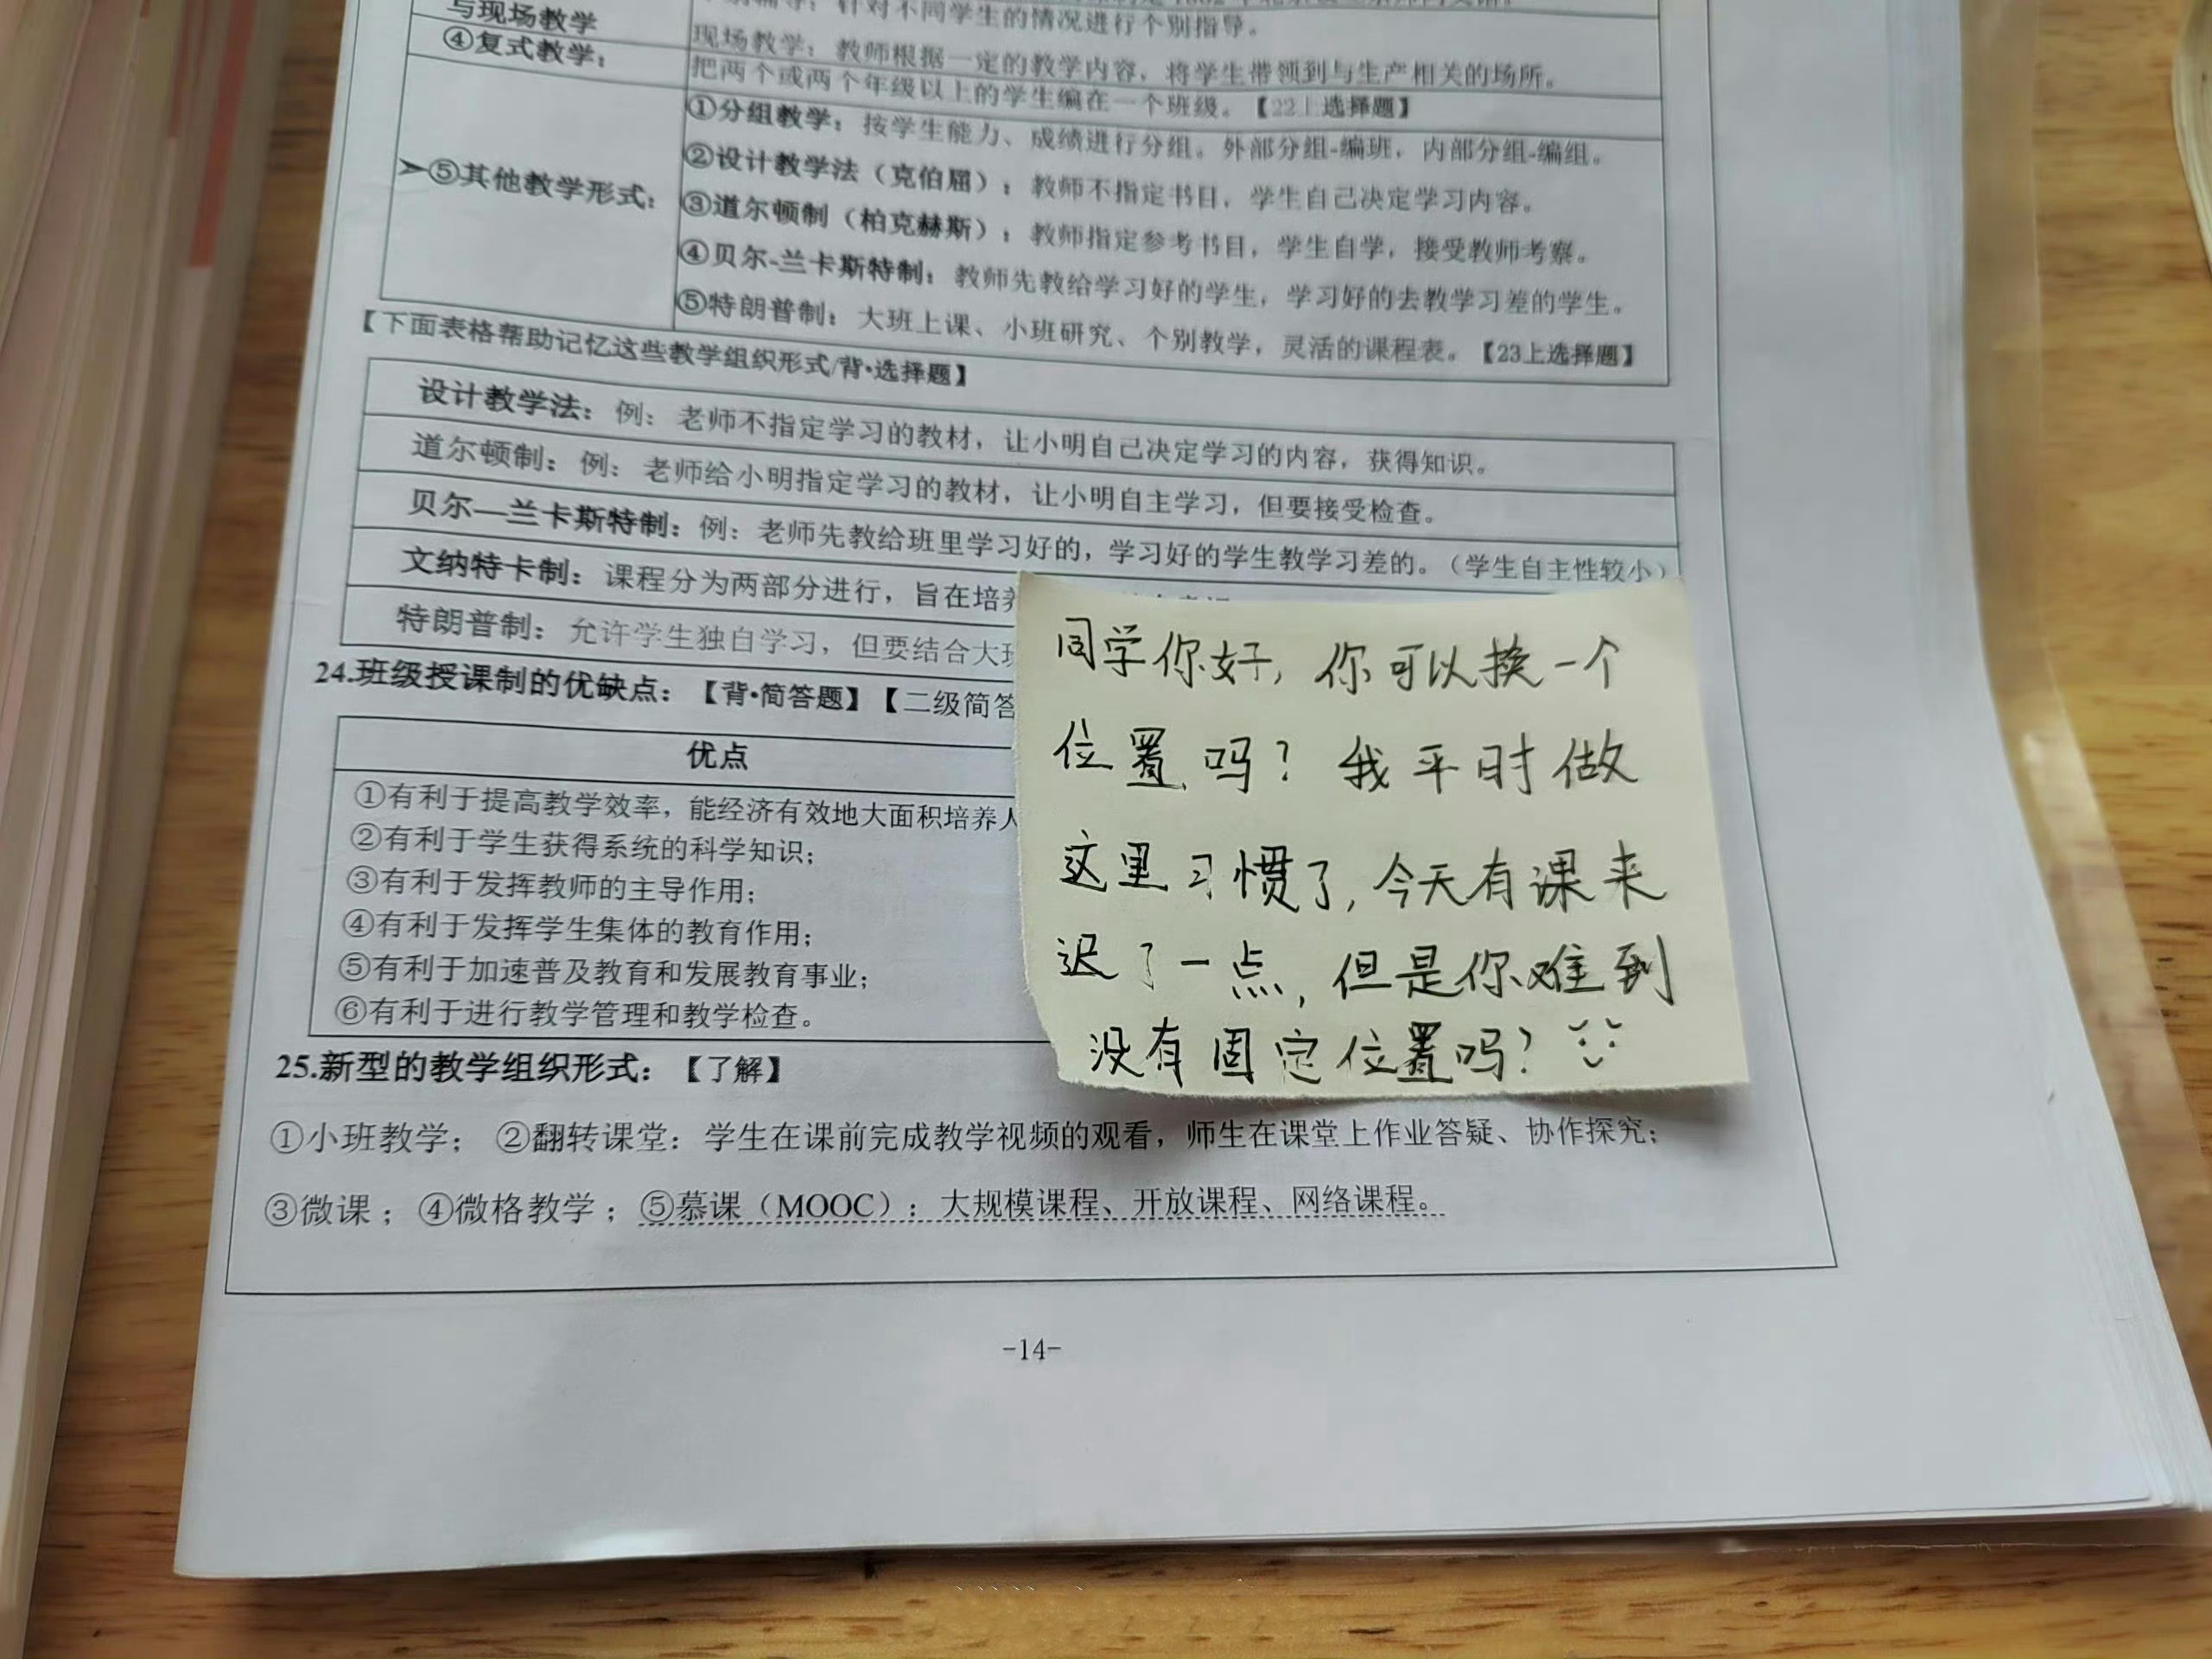 与现场教学
针对不同学生的情况进行个别指导。
现场教学：教师根据一定的教学内容，将学生带领到与生产相关的场所。
④复式教学：
把两个或两个年级以上的学生编在一个班级。【22上选择题】
➢⑤其他教学形式：
①分组教学：按学生能力、成绩进行分组。外部分组-编班，内部分组-编组。
②设计教学法（克伯屈）：教师不指定书目，学生自己决定学习内容。
③道尔顿制（柏克赫斯）：教师指定参考书目，学生自学，接受教师考察。
④贝尔-兰卡斯特制：教师先教给学习好的学生，学习好的去教学习差的学生。
⑤特朗普制：大班上课、小班研究、个别教学，灵活的课程表。【23上选择题】
【下面表格帮助记忆这些教学组织形式/背·选择题】
设计教学法：例：老师不指定学习的教材，让小明自己决定学习的内容，获得知识。
道尔顿制：例：老师给小明指定学习的教材，让小明自主学习，但要接受检查。
贝尔—兰卡斯特制：例：老师先教给班里学习好的，学习好的学生教学习差的。（学生自主性较小）
文纳特卡制：课程分为两部分进行，旨在培养
特朗普制：允许学生独自学习，但要结合大班
24.班级授课制的优缺点：【背·简答题】【二级简答
优点
①有利于提高教学效率，能经济有效地大面积培养人
②有利于学生获得系统的科学知识；
③有利于发挥教师的主导作用；
④有利于发挥学生集体的教育作用；
⑤有利于加速普及教育和发展教育事业；
⑥有利于进行教学管理和教学检查。
同学你好，你可以换一个
位置吗？我平时做
这里习惯了，今天有课来
迟了一点，但是你难到
没有固定位置吗？
25.新型的教学组织形式：【了解】
①小班教学； ②翻转课堂：学生在课前完成教学视频的观看，师生在课堂上作业答疑、协作探究；
③微课；④微格教学；⑤慕课（MOOC）：大规模课程、开放课程、网络课程。
-14-